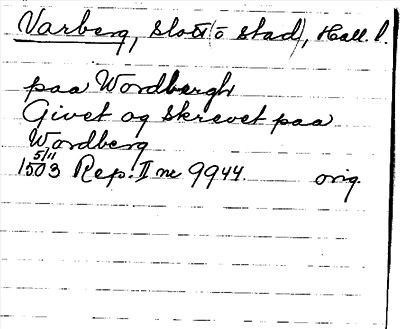 Varberg, slott (o stad), Hall. l.
paa Wordbergh
Givet og skrevet paa
Wordberg
5/11
1503 Rep. II nr 9944. orig.